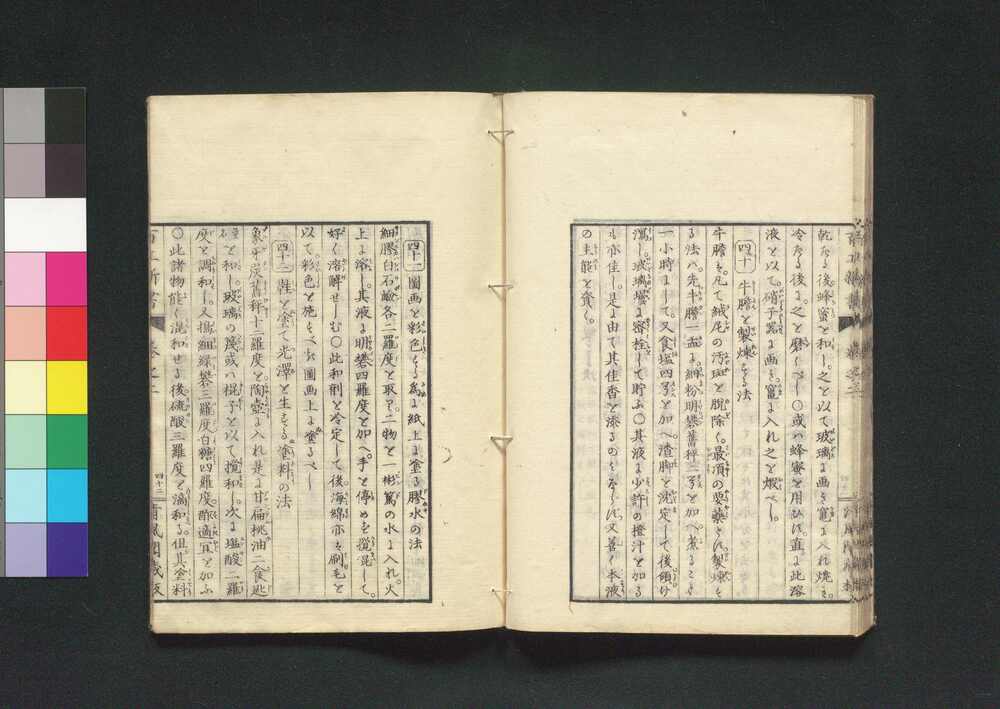 乾たる後。蜂蜜と和し。之を以て玻璃に画き竈に入れ焼き。
冷たる後に。之を磨くべし○或ハ蜂蜜を用ひず。直に此溶
液を以て。硝子器に画き。竈に入れ之を煆べし。
四十 牛膽を製煉する法
牛膽ハ。凡て絨尾の汚斑を脱除く。最頂の要薬とす。製煉す
る法ハ。先牛膽一盃に。細粉明礬蓄秤三孛を加へ。煮ること
一小時にして。又食塩四孛を加へ。渣脚を沈定して後傾け
瀉し。玻璃壜に密栓して貯ふ○其液に少許の橙汁を加る
も亦佳し。是に由て其佳香を添るのミならず。又善く本液
の主能を資く。
四十一 圖画を彩色する為に紙上に塗る膠水の法
細膠白石鹼各二羅度を取り。二物を一彬篤の水に入れ。火
上に溶し。其液に明礬四羅度を加へ。手を停めず攪混して。
好く溶解せしむ○此和剤を冷定して後。海綿亦ハ刷毛を
以て。彩色を施すべき圖画上に塗るべし
四十二 鞋を塗て光澤を生ずる塗料の法
象牙炭蓄秤十二羅度を陶壺に入れ是に甘扁桃油二食匙
を和し。玻璃の篦或ハ棍子を以て攪和し。次に塩酸二羅
度を調和し。又搗細緑礬三羅度白糖四羅度。酢適宜を加ふ
○此諸物能く混和せる後硫酸三羅度を滴和る。但其塗料
百工新書 巻之二 四十二